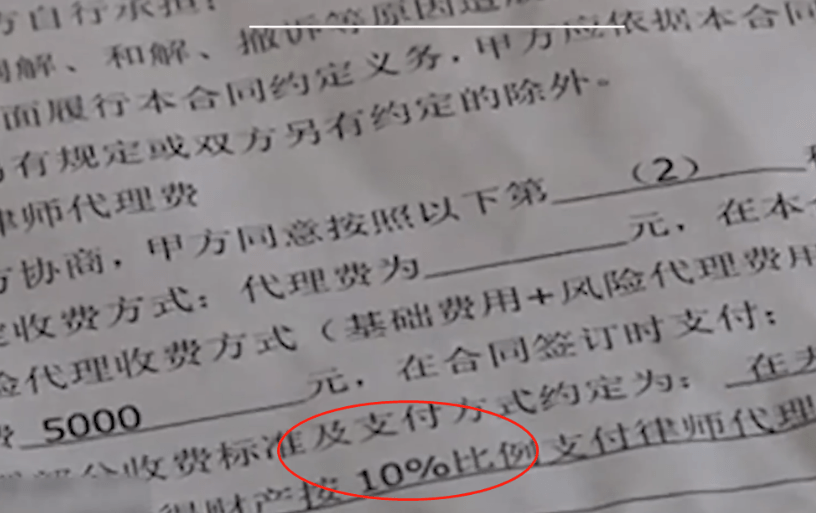 方自行承担;
调解、和解、撤诉等原因造成
面履行本合同约定义务,甲方应依据本合同
有规定或双方另有约定的除外。
律师代理费
方协商,甲方同意按照以下第 (2)
收费方式:代理费为 元,在本
险代理收费方式(基础费用+风险代理费用
费 5000 元,在合同签订时支付;
部分收费标准及支付方式约定为: 在
得财产按10%比例支付律师代理